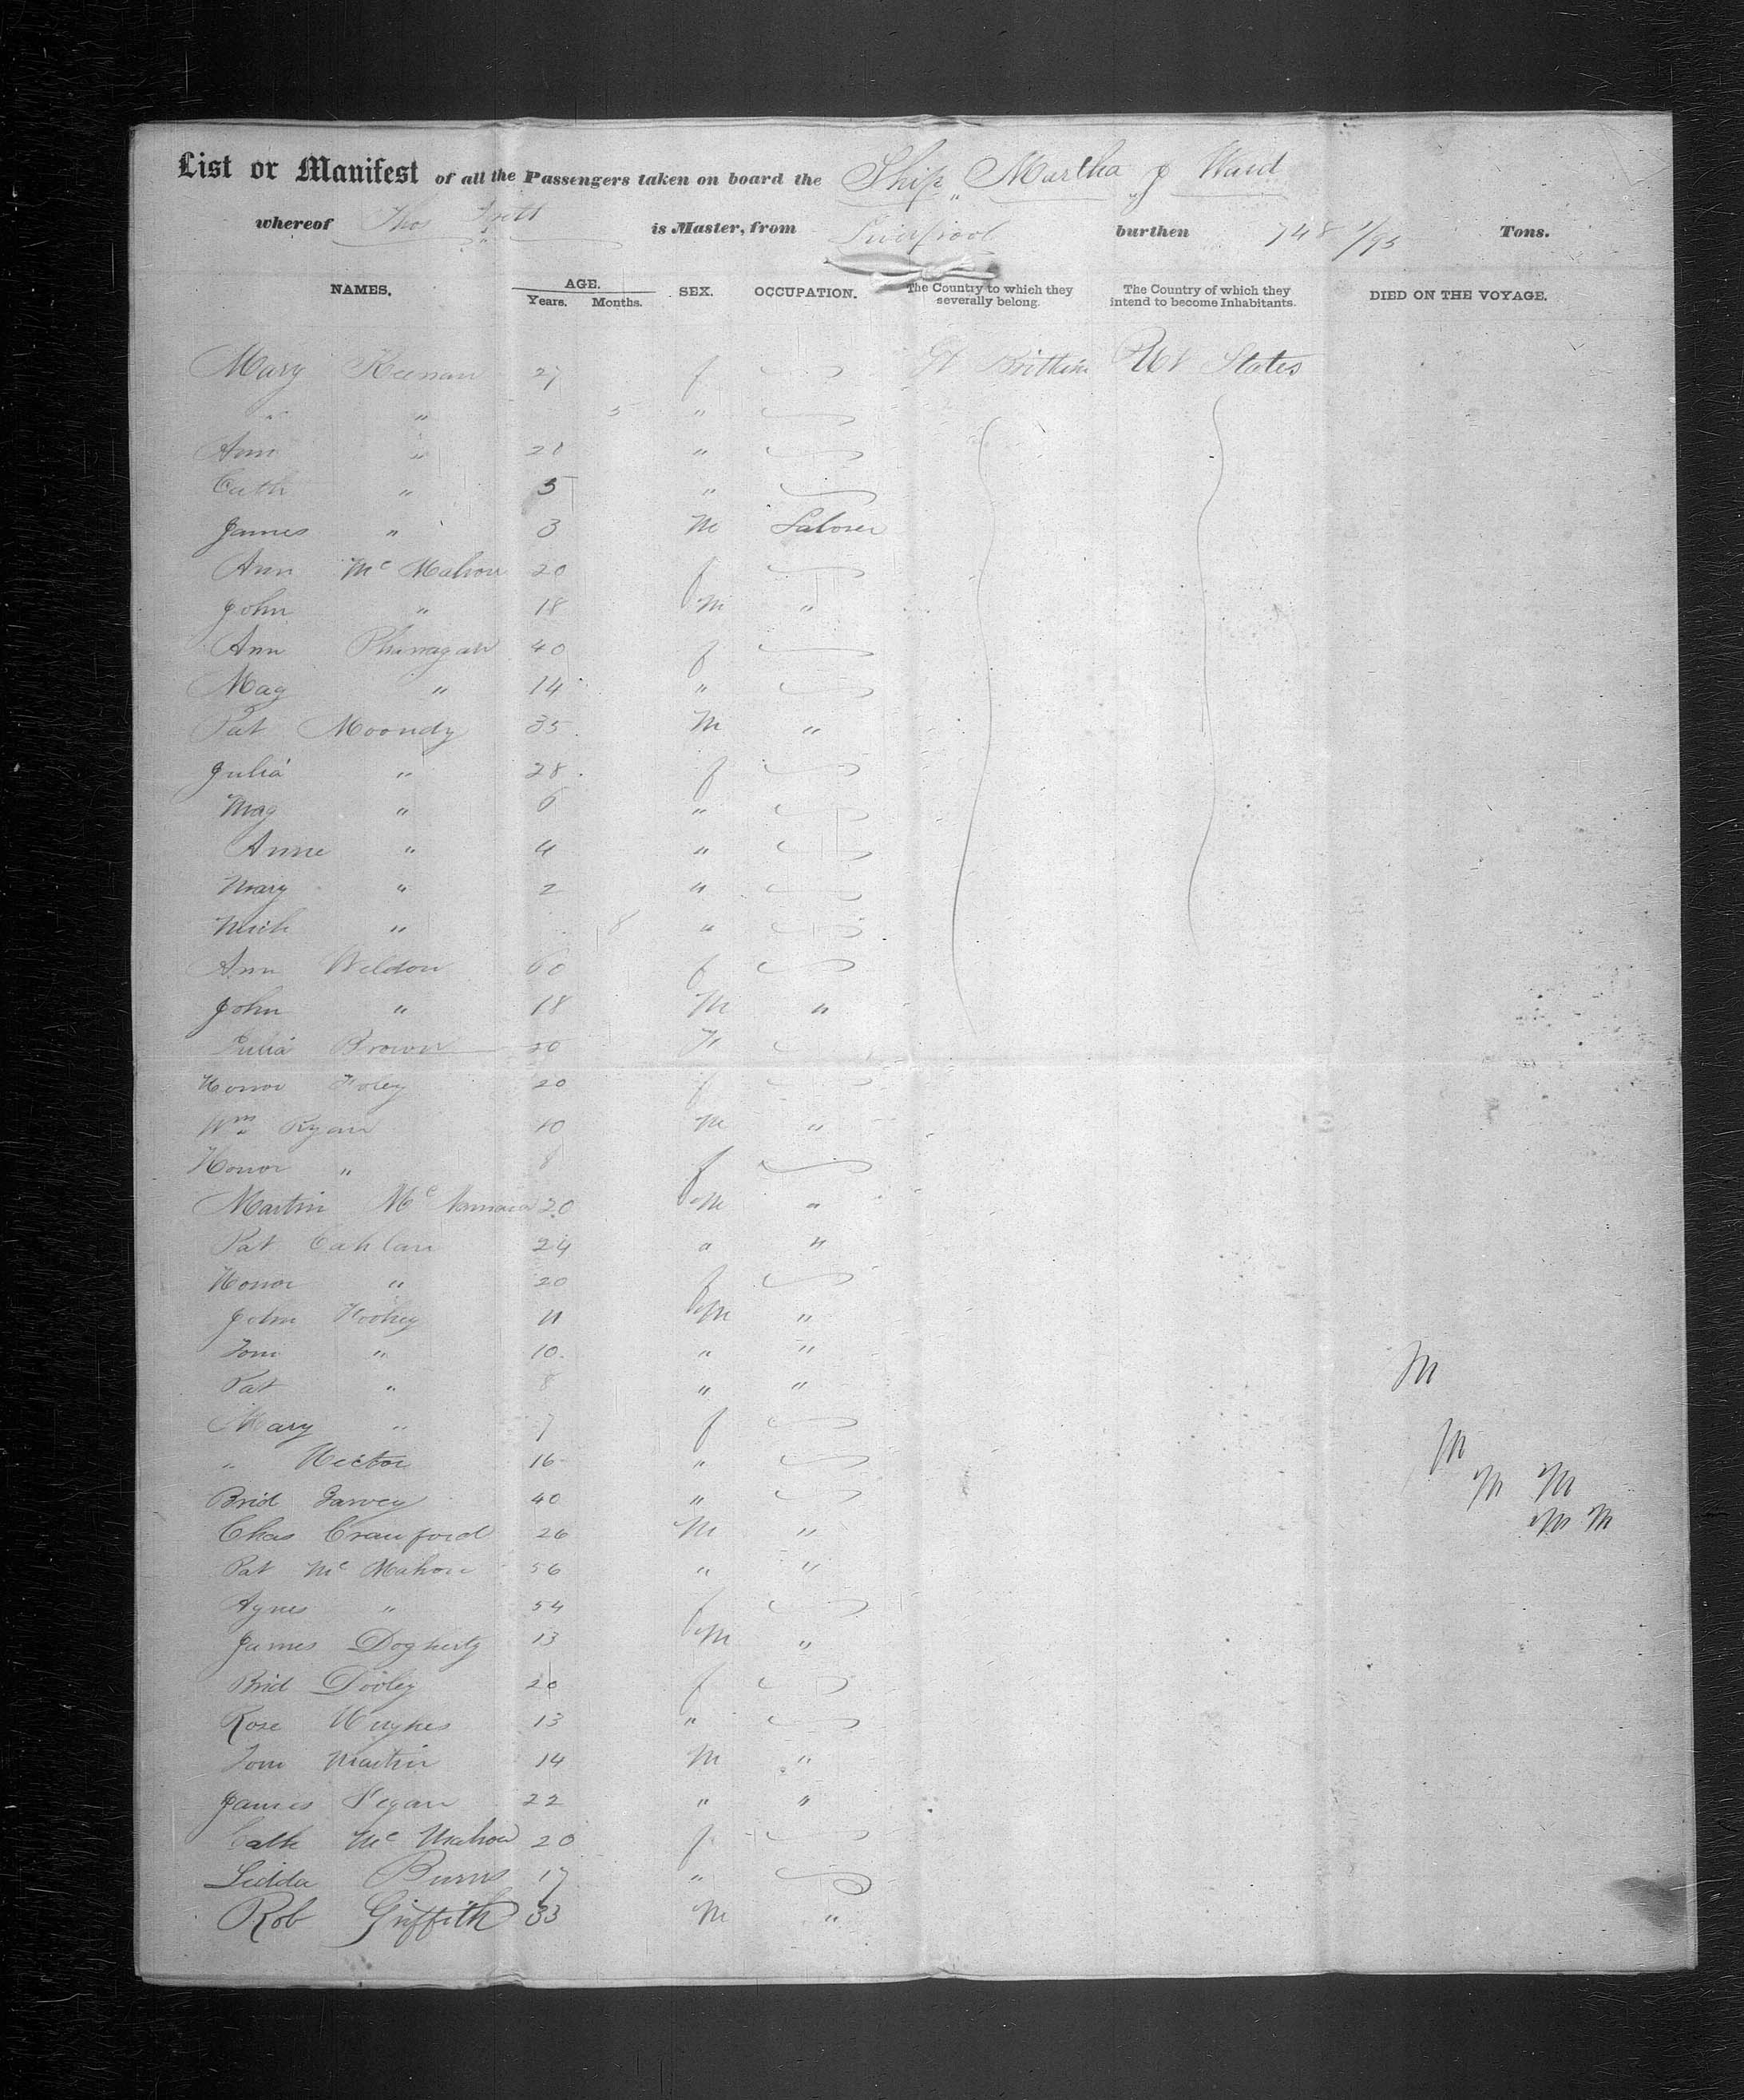 List or Manifest of all the Passengers taken on board the Ship Martha J Ward
whereof Thos is Master, from Liverpool burthen 748 1/95 Tons.
NAMES. AGE. SEX. OCCUPATION. The Country to which they severally belong. The Country of which they intend to become Inhabitants. DIED ON THE VOYAGE.
Years. Months.
Mary Keenan 27 f Gt Brittain Ut States
" " 5 "
Ann " 21 "
Cath " 5 "
James " 3 M Laborer
Ann Mc Mahon 20 f
John " 18 M "
Ann Phanagan 40 f
Mag " 14 "
Pat Moondy 35 M "
Julia " 28 f
Mag " 6 "
Anne " 4 "
Mary " 2 "
Mich " 8 "
Ann Weldon 60 f
John " 18 M "
Julia Brown 50 F
Honor Foley 20 f
Wm Ryan 10 M "
Honor " 8 f
Martin Mc Namara 20 M "
Pat Cahlan 24 " "
Honor " 20 f
John Hoohey 11 M "
Tom " 10 " "
Pat " 8 " "
Mary " 7 f
" Hector 16 "
Brid Garvey 40 "
Chas Crawford 26 M "
Pat Mc Mahon 56 " "
Agnes " 54 f
James Dogherty 13 M "
Brid Dooley 20 f
Rose Hughes 13 "
Tom Martin 14 M "
James Fegan 22 " "
Cath Mc Mahon 20 f
Lidda Burns 17 "
Rob Griffith 33 M "
M
M
M M
M M